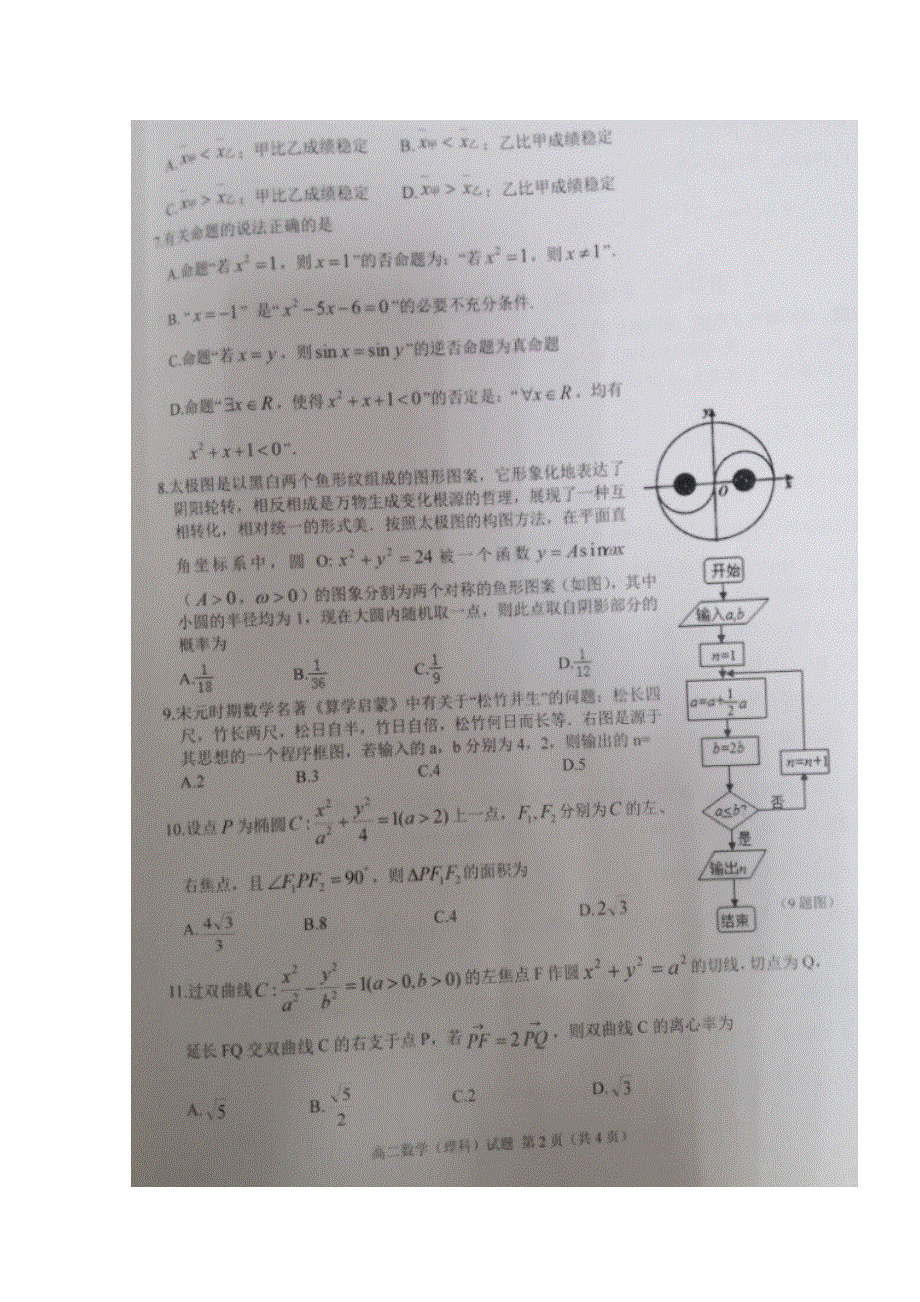 A. x̄甲 < x̄乙；甲比乙成绩稳定 B. x̄甲 < x̄乙；乙比甲成绩稳定
C. x̄甲 > x̄乙；甲比乙成绩稳定 D. x̄甲 > x̄乙；乙比甲成绩稳定
7.有关命题的说法正确的是
A.命题“若 x² =1，则 x=1”的否命题为：“若 x² =1，则 x≠1”.
B. “x=−1” 是“x²−5x−6=0”的必要不充分条件.
C.命题“若 x=y，则 sin x=sin y”的逆否命题为真命题
D.命题“∃x∈R，使得 x²+x+1<0”的否定是：“∀x∈R，均有
x²+x+1<0”.
8.太极图是以黑白两个鱼形纹组成的图形图案，它形象化地表达了
阴阳轮转，相反相成是万物生成变化根源的哲理，展现了一种互
相转化，相对统一的形式美．按照太极图的构图方法，在平面直
角坐标系中，圆 O: x²+y²=24 被一个函数 y=Asinωx
（A>0，ω>0）的图象分割为两个对称的鱼形图案（如图），其中
小圆的半径均为 1，现在大圆内随机取一点，则此点取自阴影部分的
概率为
A. 1/18 B. 1/36 C. 1/9 D. 1/12
y
O
x
9.宋元时期数学名著《算学启蒙》中有关于“松竹并生”的问题：松长四
尺，竹长两尺，松日自半，竹日自倍，松竹何日而长等．右图是源于
其思想的一个程序框图，若输入的 a，b 分别为 4，2，则输出的 n=
A.2 B.3 C.4 D.5
开始
输入a,b
n=1
a=a+1/2a
b=2b
n=n+1
a≤b?
否
是
输出n
结束
（9 题图）
10.设点 P 为椭圆 C: x²/a² + y²/4 =1(a>2)上一点，F₁,F₂分别为 C 的左、
右焦点，且 ∠F₁PF₂=90°，则 ΔPF₁F₂的面积为
A. 4√3/3 B.8 C.4 D.2√3
11.过双曲线 C: x²/a² − y²/b² =1(a>0,b>0)的左焦点 F 作圆 x²+y²=a²的切线,切点为 Q，
延长 FQ 交双曲线 C 的右支于点 P，若 PF→=2PQ→，则双曲线 C 的离心率为
A.√5 B. √5/2 C.2 D.√3
高二数学（理科）试题 第 2 页（共 4 页）